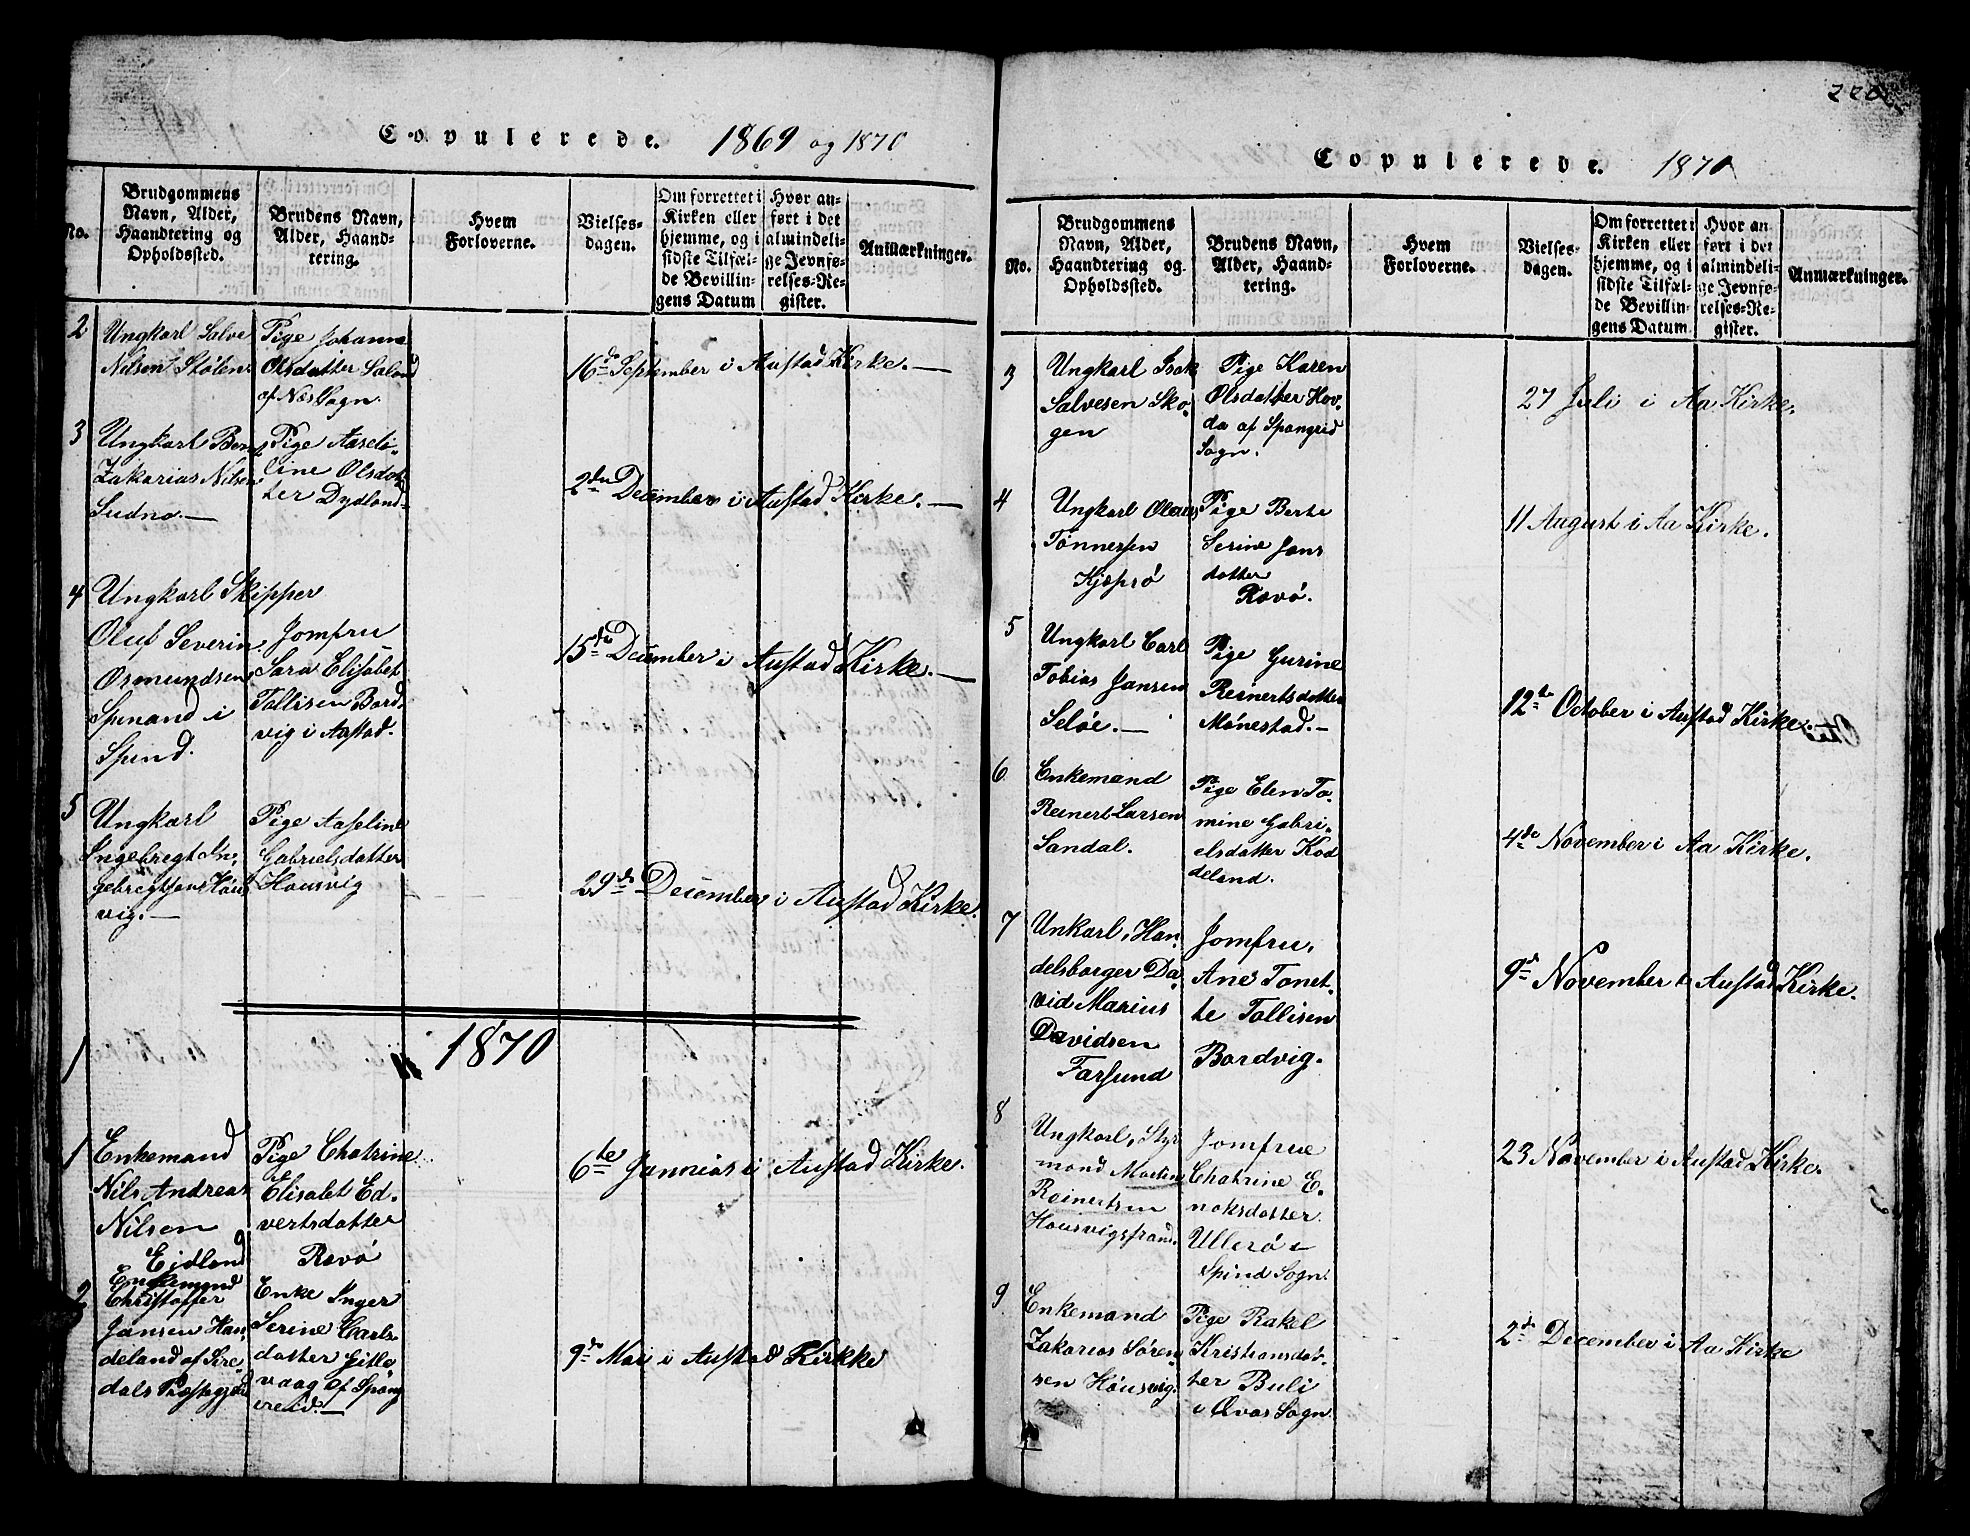 Copulerede. 1869 og 1870
No.
Brudgommens
Navn, Alder,
Haandtering og
Opholdssted.
Brudens Navn,
Alder, Haand-
tering.
Hvem
Forloverne.
Vielses-
dagen.
Om forrettet i
Kirken eller
hjemme, og i
sidste Tilfæl-
de Bevillin-
gens Datum
Hvor an-
ført i det
almindeli-
ge Jevnfø-
relses-Re-
gister.
Anmærkninger.
2
Ungkarl Salve
Nilsen Stølen
Pige Johanne
Olsdatter Saland
af Næs Sogn.
16de September i Austad Kirke.
3
Ungkarl Bernt
Zakarias Nilsen
Sudno.
Pige Aaseli-
line Olsdat-
ter Dydland
2den December i Austad Kirke.
4
Ungkarl Skipper
Oluf Severin
Osmundsen
Spinand i
Spind.
Jomfru
Sara Elisabet
Tollisen Bord-
vig i Austad.
15de December i Austad Kirke.
5
Ungkarl
Ingebregt In-
gebregtsen Hous-
vig.
Pige Aaseline
Gabrielsdatter
Housvig
29de December i Austad Kirke.
1870
1
1
Enkemand
Nils Andreas
Nilsen
Eidland
Pige Chatrine
Elisabet Ed-
vertsdatter
Rævø
6te Januar i Austad Kirke.
2
Enkemand
Christoffer
Jansen Han-
deland af Sire-
dals Præstgjeld
Enke Inger
Serine Carls-
datter Gitle
vaag af Spang
ireid.
9de Mai i Austad Kirkke
Copulerede. 1870
No.
Brudgommens
Navn, Alder,
Haandtering og
Opholdssted.
Brudens Navn,
Alder, Haand-
tering.
Hvem
Forloverne.
Vielses-
dagen.
Om forrettet i
Kirken eller
hjemme, og i
sidste Tilfæl-
de Bevillin-
gens Datum
Hvor an-
ført i det
almindeli-
ge Jevnfø-
relses-Re-
gister.
Anmærkninger.
3
Ungkarl Isak
Salvesen Sko-
gen
Pige Karen
Olsdatter Hov-
da af Spangreid
Sogn.
27 Juli i Aa Kirke.
4
Ungkarl Olaus
Tønnersen
Kjøprø
Pige Berte
Serine Jans
datter
Rævø.
11 August i Aa Kirke.
5
Ungkarl Carl
Tobias Jansen
Seløe.
Pige Gurine
Reinertsdatter
Mønestad.
12te October i Austad Kirke.
6
Enkemand
Reinert Larsen
Sandal.
Pige Elen To-
mine Gabri-
elsdatter Kod
deland.
4de November i Aa Kirke.
7
Unkarl, Han-
delsborger Da-
vid Marius
Davidsen
Farsund
Jomfru,
Ane Tonet-
te Tollisen
Bordvig.
9de November i Austad Kirke.
8
Ungkarl, Styr
mand Martin
Reinertsen
Housvigstrand.
Jomfrue
Chatrine E-
noksdatter
Ullerø i
Spind Sogn.
23 November i Austad Kirke.
9
Enkemand
Zakarias Sören-
sen Housvig.
Pige Rakel
Kristiansdat-
ter Buli
i Qvas Sogn
2de December i Aa Kirke